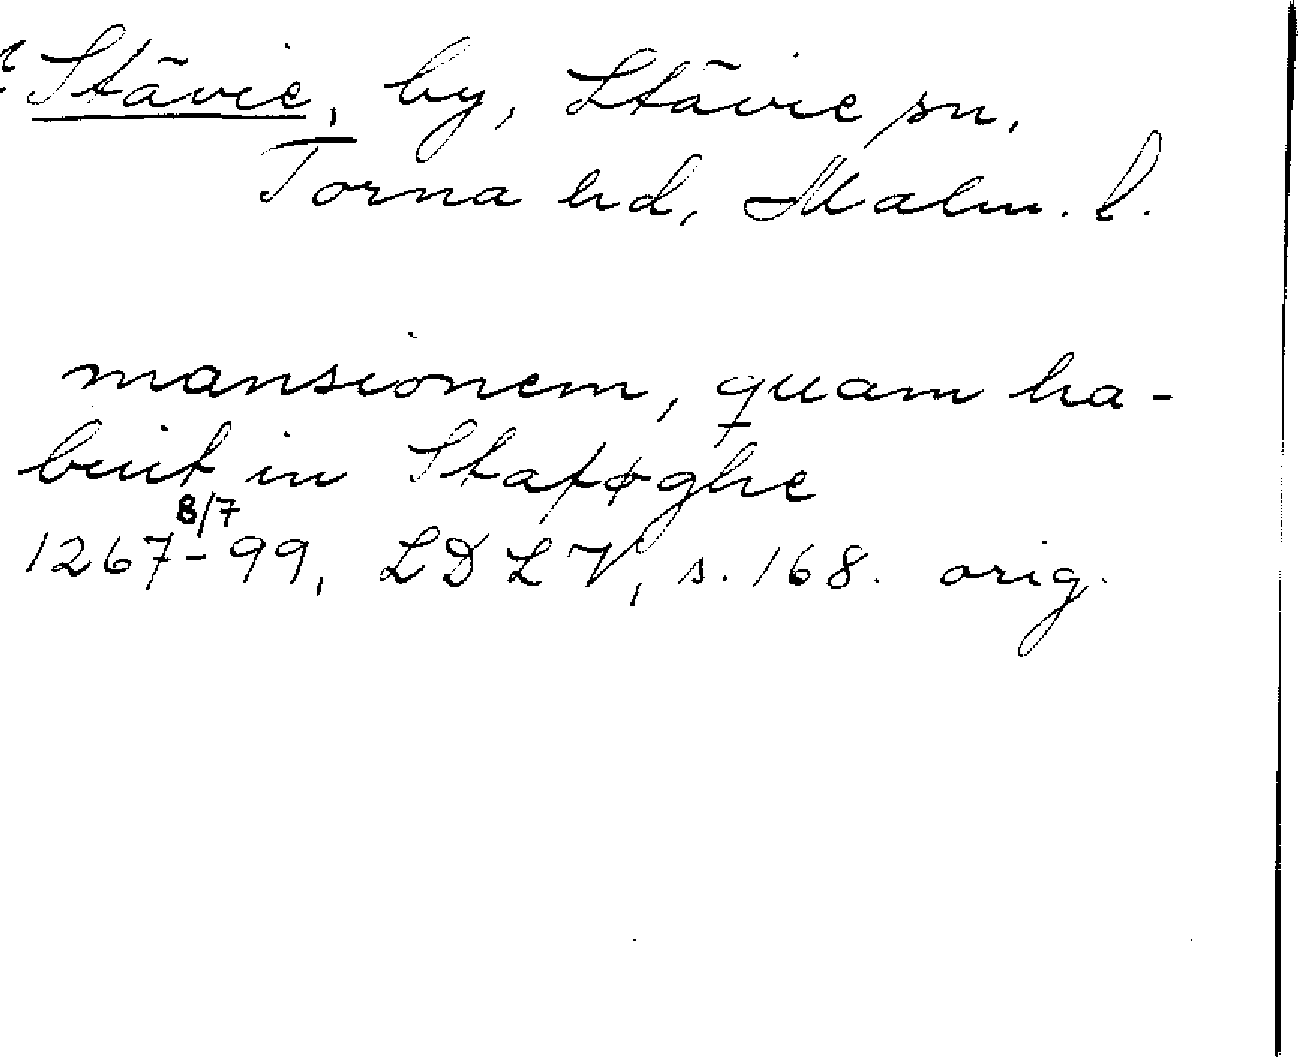 Stävie, by, Stävie sn,
Torna hd, Malm. l.
mansionem, quam ha-
buit in Staføghe
8/7
1267-99, LDLV, s. 168. orig.